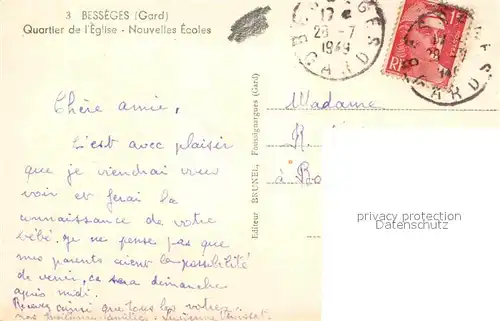 3 BESSÈGES (Gard)
Quartier de l'Église - Nouvelles Écoles
BESSÈGES
17
26-7
1949
GARD
RF
Chère amie,
C'est avec plaisir
que je viendrai vous
voir et ferai la
connaissance de votre
bébé. Je ne pense pas que
mes parents aient la possibilité
de venir, ce sera dimanche
après midi.
Recevez ainsi que tous les votres
nos meilleures amitiés.
Editeur BRUNEL, Foussignargues (Gard)
Madame
R
à Bo
privacy protection
Datenschutz